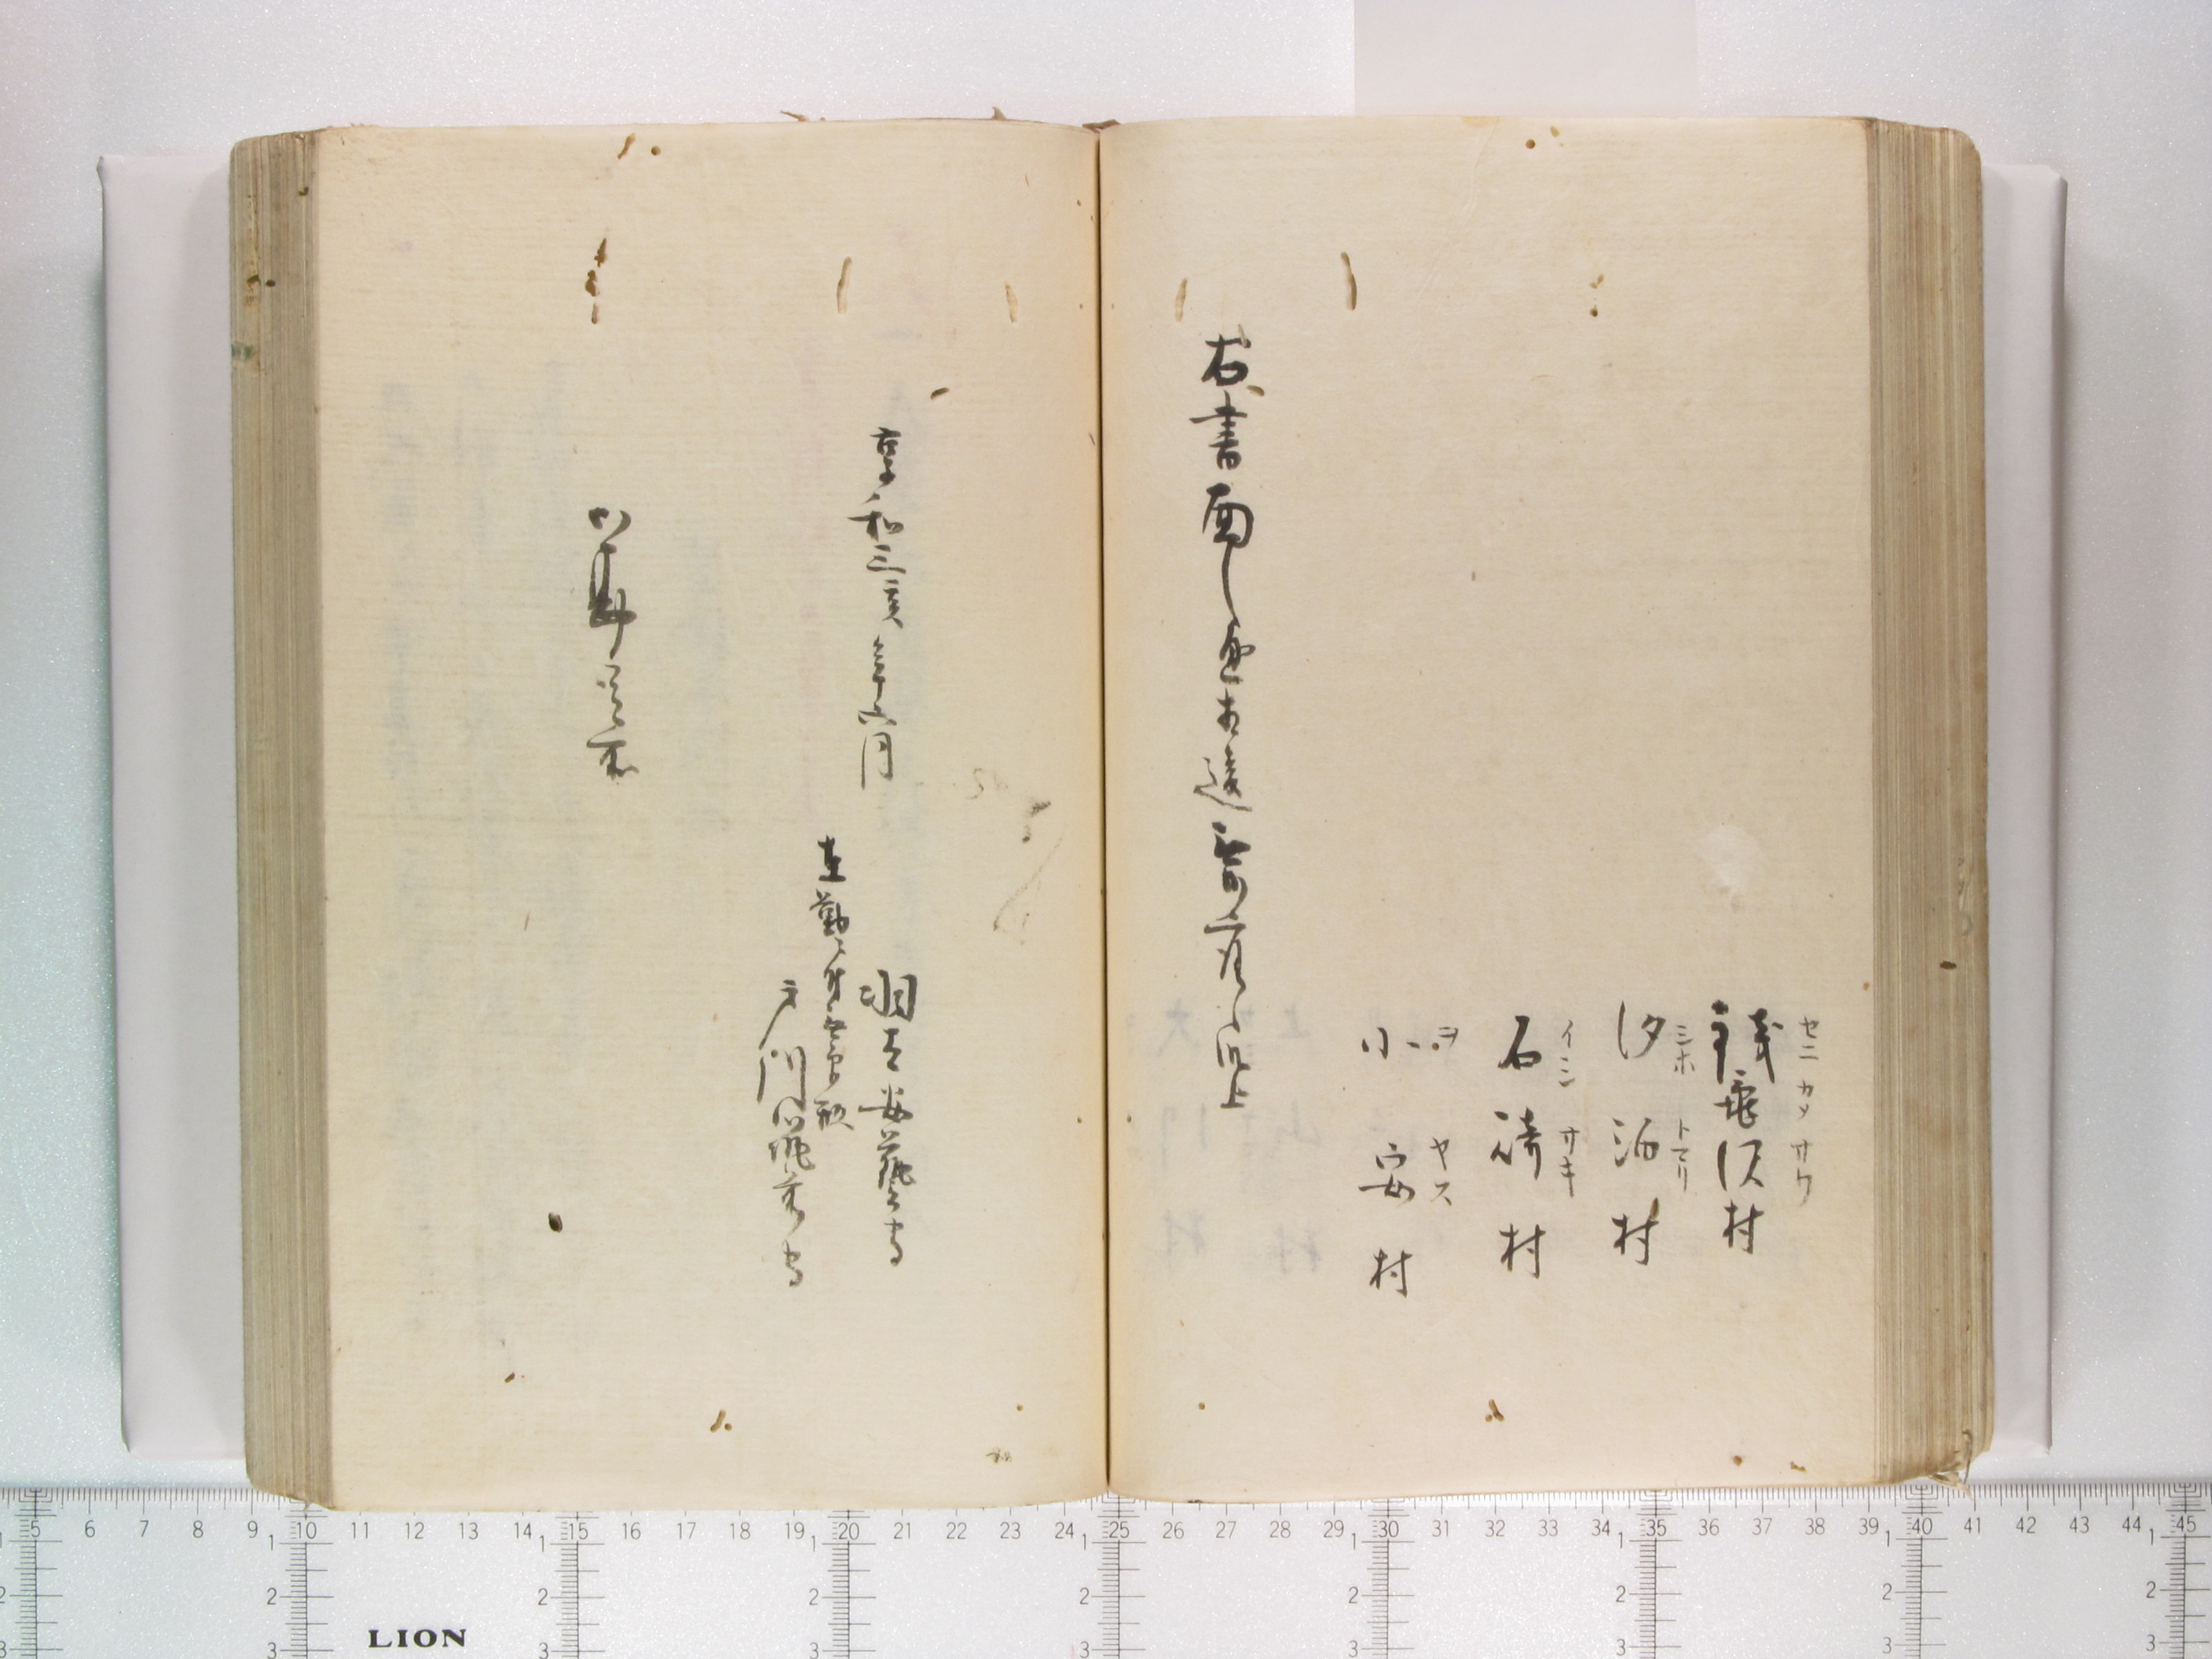 セニ カメ サワ
銭亀沢村
シホ トマリ
汐泊村
イシ サキ
石崎村
ヲ ヤス
小安村
右書面之通相違無御座候以上
享和三亥年六月
羽太安藝守
在勤ニ付無印形
戸川筑前守
御勘定所
5 6 7 8 9 10 11 12 13 14 15 16 17 18 19 20 21 22 23 24 25 26 27 28 29 30 31 32 33 34 35 36 37 38 39 40 41 42 43 44 45
1 1 1 1 1 1 1 1
2 2 2 2 2 2 2 2 2
3 3 3 3 3 3 3 3 3
LION